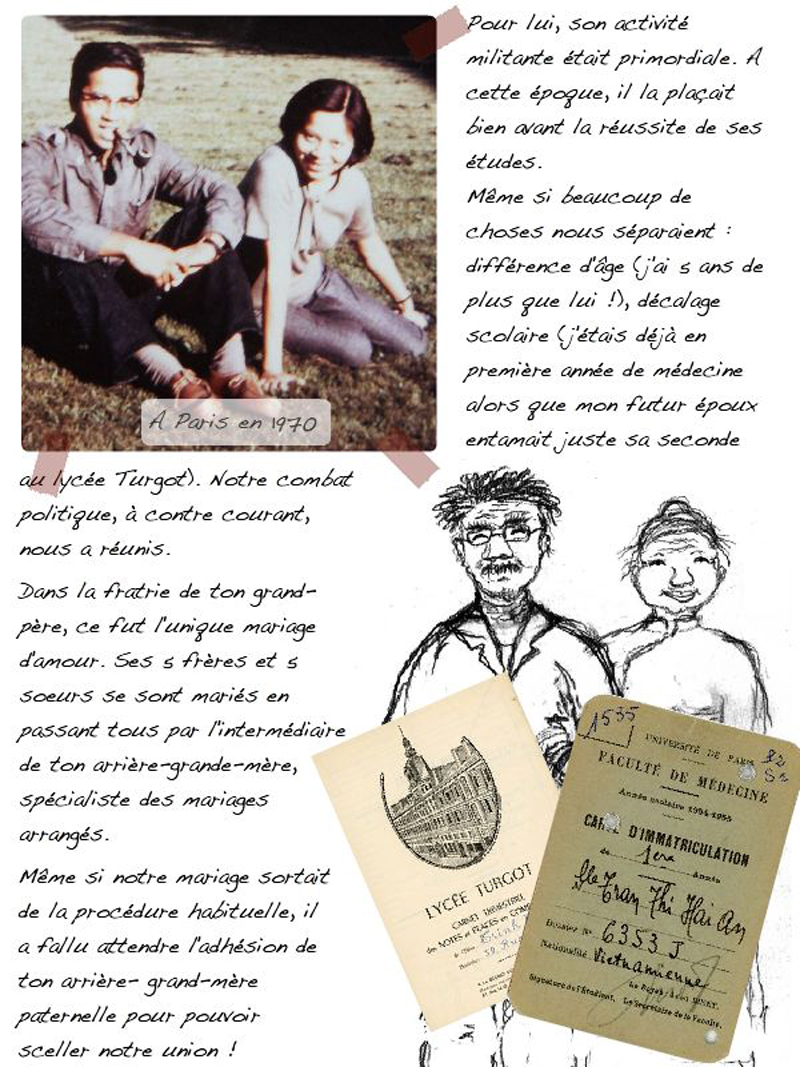 Pour lui, son activité
militante était primordiale. A
cette époque, il la plaçait
bien avant la réussite de ses
études.
Même si beaucoup de
choses nous séparaient :
différence d'âge (j'ai 5 ans de
plus que lui !), décalage
scolaire (j'étais déjà en
première année de médecine
alors que mon futur époux
entamait juste sa seconde
A Paris en 1970
au lycée Turgot). Notre combat
politique, à contre courant,
nous a réunis.
Dans la fratrie de ton grand-
père, ce fut l'unique mariage
d'amour. Ses 5 frères et 5
soeurs se sont mariés en
passant tous par l'intermédiaire
de ton arrière-grande-mère,
spécialiste des mariages
arrangés.
Même si notre mariage sortait
de la procédure habituelle, il
a fallu attendre l'adhésion de
ton arrière- grand-mère
paternelle pour pouvoir
sceller notre union !
LYCÉE TURGOT
CARNET TRIMESTRIEL
des NOTES et PLACES en
1535
UNIVERSITÉ DE PARIS
FACULTÉ DE MÉDECINE
Année scolaire 1954-1955
CARTE D'IMMATRICULATION
en 1ère Année
Mlle Tran Thi Hai An
Dossier No 6353 J
Nationalité Vietnamienne
Signature de l'Étudiant. Le Secrétaire de la Faculté.